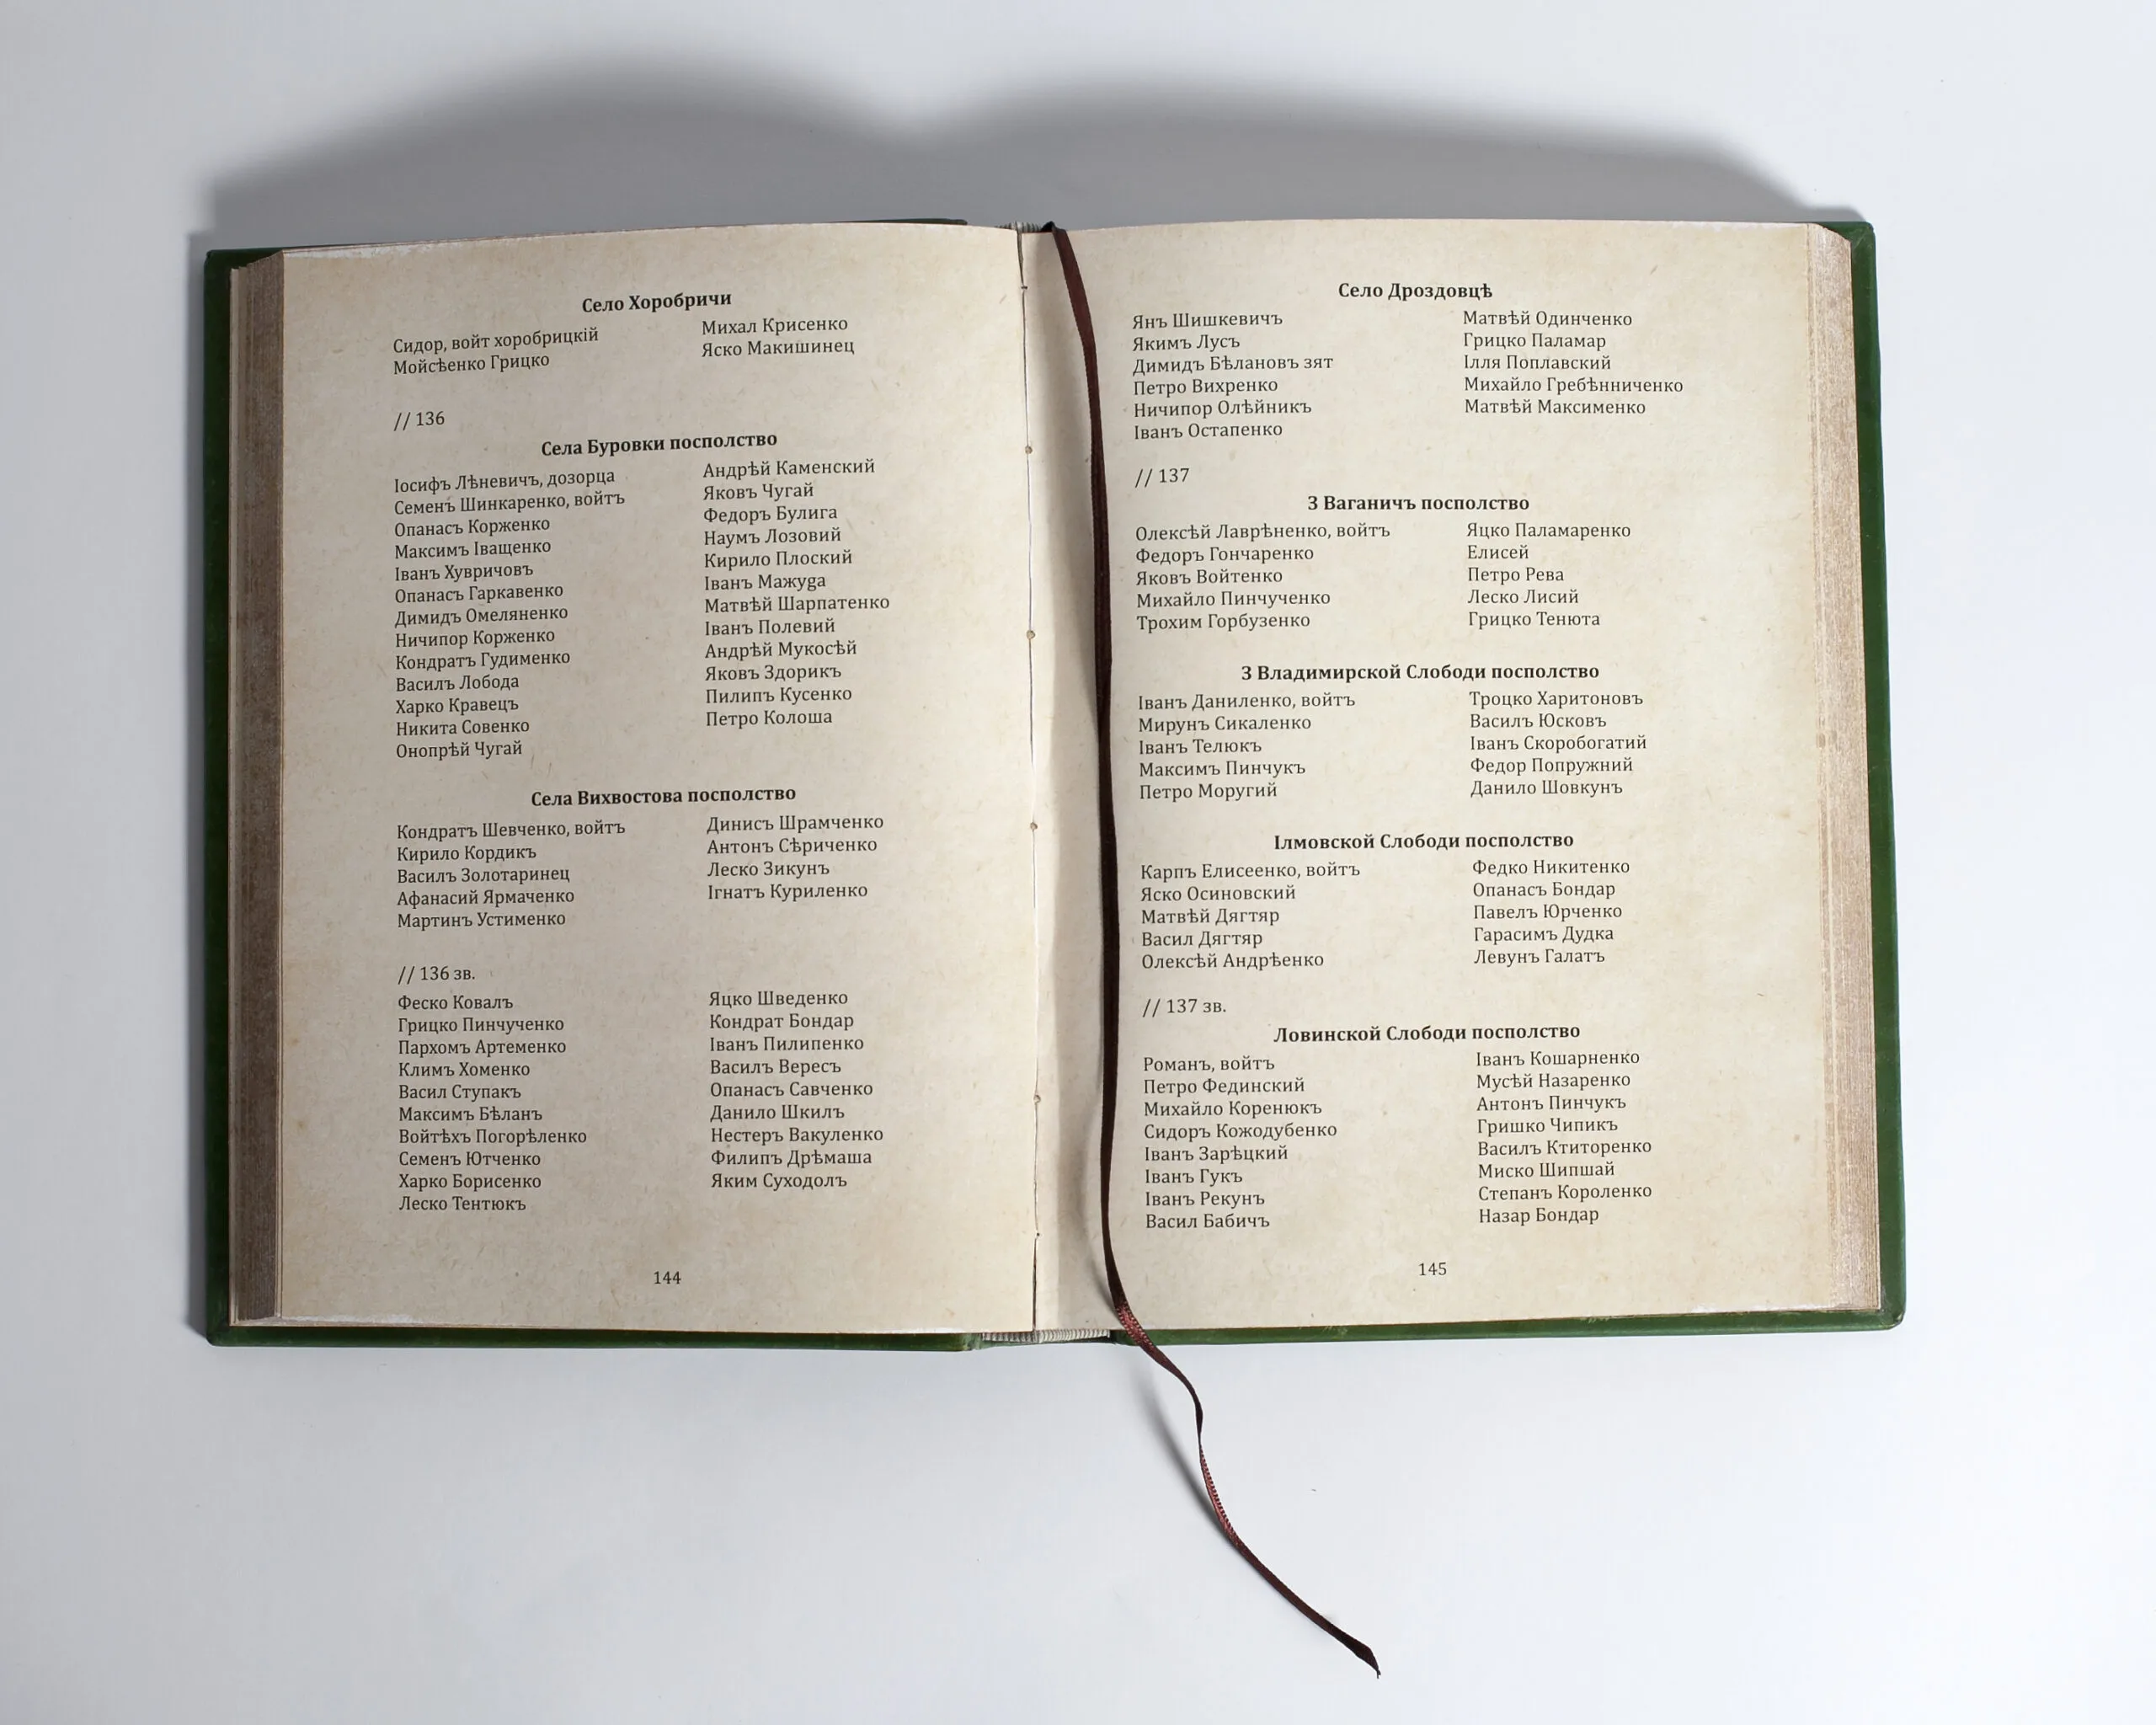 Село Хоробричи
Сидор, войт хоробрицкій
Мойсѣенко Грицко
Михал Крисенко
Яско Макишинец
// 136
Села Буровки посполство
Іосифъ Лѣневичъ, дозорца
Семенъ Шинкаренко, войтъ
Опанасъ Корженко
Максимъ Іващенко
Іванъ Хувричовъ
Опанасъ Гаркавенко
Димидъ Омеляненко
Ничипор Корженко
Кондратъ Гудименко
Василъ Лобода
Харко Кравецъ
Никита Совенко
Онопрѣй Чугай
Андрѣй Каменский
Яковъ Чугай
Федоръ Булига
Наумъ Лозовий
Кирило Плоский
Іванъ Мажуga
Матвѣй Шарпатенко
Іванъ Полевий
Андрѣй Мукосѣй
Яковъ Здорикъ
Пилипъ Кусенко
Петро Колоша
Села Вихвостова посполство
Кондратъ Шевченко, войтъ
Кирило Кордикъ
Василъ Золотаринец
Афанасий Ярмаченко
Мартинъ Устименко
Динисъ Шрамченко
Антонъ Сѣриченко
Леско Зикунъ
Ігнатъ Куриленко
// 136 зв.
Феско Ковалъ
Грицко Пинчученко
Пархомъ Артеменко
Климъ Хоменко
Васил Ступакъ
Максимъ Бѣланъ
Войтѣхъ Погорѣленко
Семенъ Ютченко
Харко Борисенко
Леско Тентюкъ
Яцко Шведенко
Кондрат Бондар
Іванъ Пилипенко
Василъ Вересъ
Опанасъ Савченко
Данило Шкилъ
Нестеръ Вакуленко
Филипъ Дрѣмаша
Яким Суходолъ
144
Село Дроздовцѣ
Янъ Шишкевичъ
Якимъ Лусъ
Димидъ Бѣлановъ зят
Петро Вихренко
Ничипор Олѣйникъ
Іванъ Остапенко
Матвѣй Одинченко
Грицко Паламар
Ілля Поплавский
Михайло Гребѣнниченко
Матвѣй Максименко
// 137
З Ваганичъ посполство
Олексѣй Лаврѣненко, войтъ
Федоръ Гончаренко
Яковъ Войтенко
Михайло Пинчученко
Трохим Горбузенко
Яцко Паламаренко
Елисей
Петро Рева
Леско Лисий
Грицко Тенюта
З Владимирской Слободи посполство
Іванъ Даниленко, войтъ
Мирунъ Сикаленко
Іванъ Телюкъ
Максимъ Пинчукъ
Петро Моругий
Троцко Харитоновъ
Василъ Юсковъ
Іванъ Скоробогатий
Федор Попружний
Данило Шовкунъ
Ілмовской Слободи посполство
Карпъ Елисеенко, войтъ
Яско Осиновский
Матвѣй Дягтяр
Васил Дягтяр
Олексѣй Андрѣенко
Федко Никитенко
Опанасъ Бондар
Павелъ Юрченко
Гарасимъ Дудка
Левунъ Галатъ
// 137 зв.
Ловинской Слободи посполство
Романъ, войтъ
Петро Фединский
Михайло Коренюкъ
Сидоръ Кожодубенко
Іванъ Зарѣцкий
Іванъ Гукъ
Іванъ Рекунъ
Васил Бабичъ
Іванъ Кошарненко
Мусѣй Назаренко
Антонъ Пинчукъ
Гришко Чипикъ
Василъ Ктиторенко
Миско Шипшай
Степанъ Короленко
Назар Бондар
145